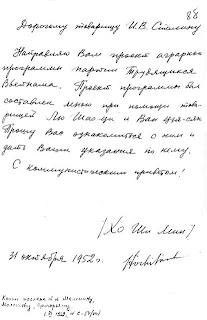 88
Дорогому товарищу И.В. Сталину
Направляю Вам проект аграрной
программы партии Трудящихся
Вьетнама. Проект программы был
составлен мною при помощи това-
рищей Лю Шао-ци и Ван Цзя-сян.
Прошу Вас ознакомиться с ним и
дать Ваши указания по нему.
С коммунистическим приветом!
/Хо Ши Мин/
31 октября 1952г.
Копии посланы т.т. Маленкову,
Молотову,